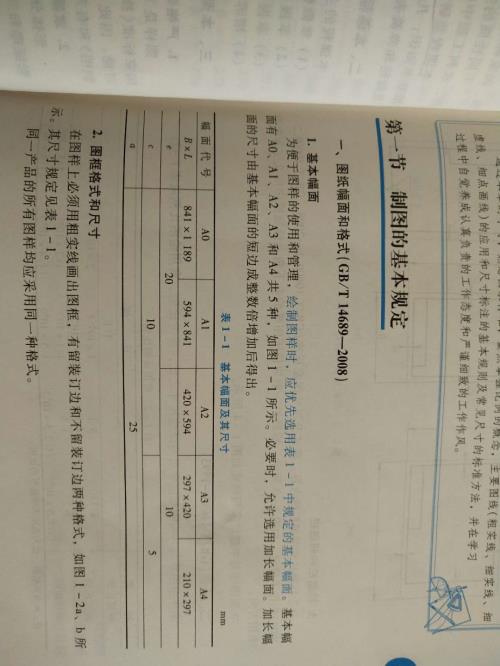 虚线、细点画线)的应用和尺寸标注的基本规则及常见尺寸的标准方法，并在学习
过程中自觉养成认真负责的工作态度和严谨细致的工作作风。
第一节 制图的基本规定
一、图纸幅面和格式(GB/T 14689—2008)
1. 基本幅面
为便于图样的使用和管理，绘制图样时，应优先选用表 1-1 中规定的基本幅面。基本幅
面有 A0、A1、A2、A3 和 A4 共 5 种，如图 1-1 所示。必要时，允许选用加长幅面。加长幅
面的尺寸由基本幅面的短边成整数倍增加后得出。
表 1-1 基本幅面及其尺寸
mm
幅面代号 A0 A1 A2 A3 A4
B×L 841×1 189 594×841 420×594 297×420 210×297
e 20 10
c 10 5
a 25
2. 图框格式和尺寸
在图样上必须用粗实线画出图框，有留装订边和不留装订边两种格式，如图 1-2a、b 所
示。其尺寸规定见表 1-1。
同一产品的所有图样均应采用同一种格式。